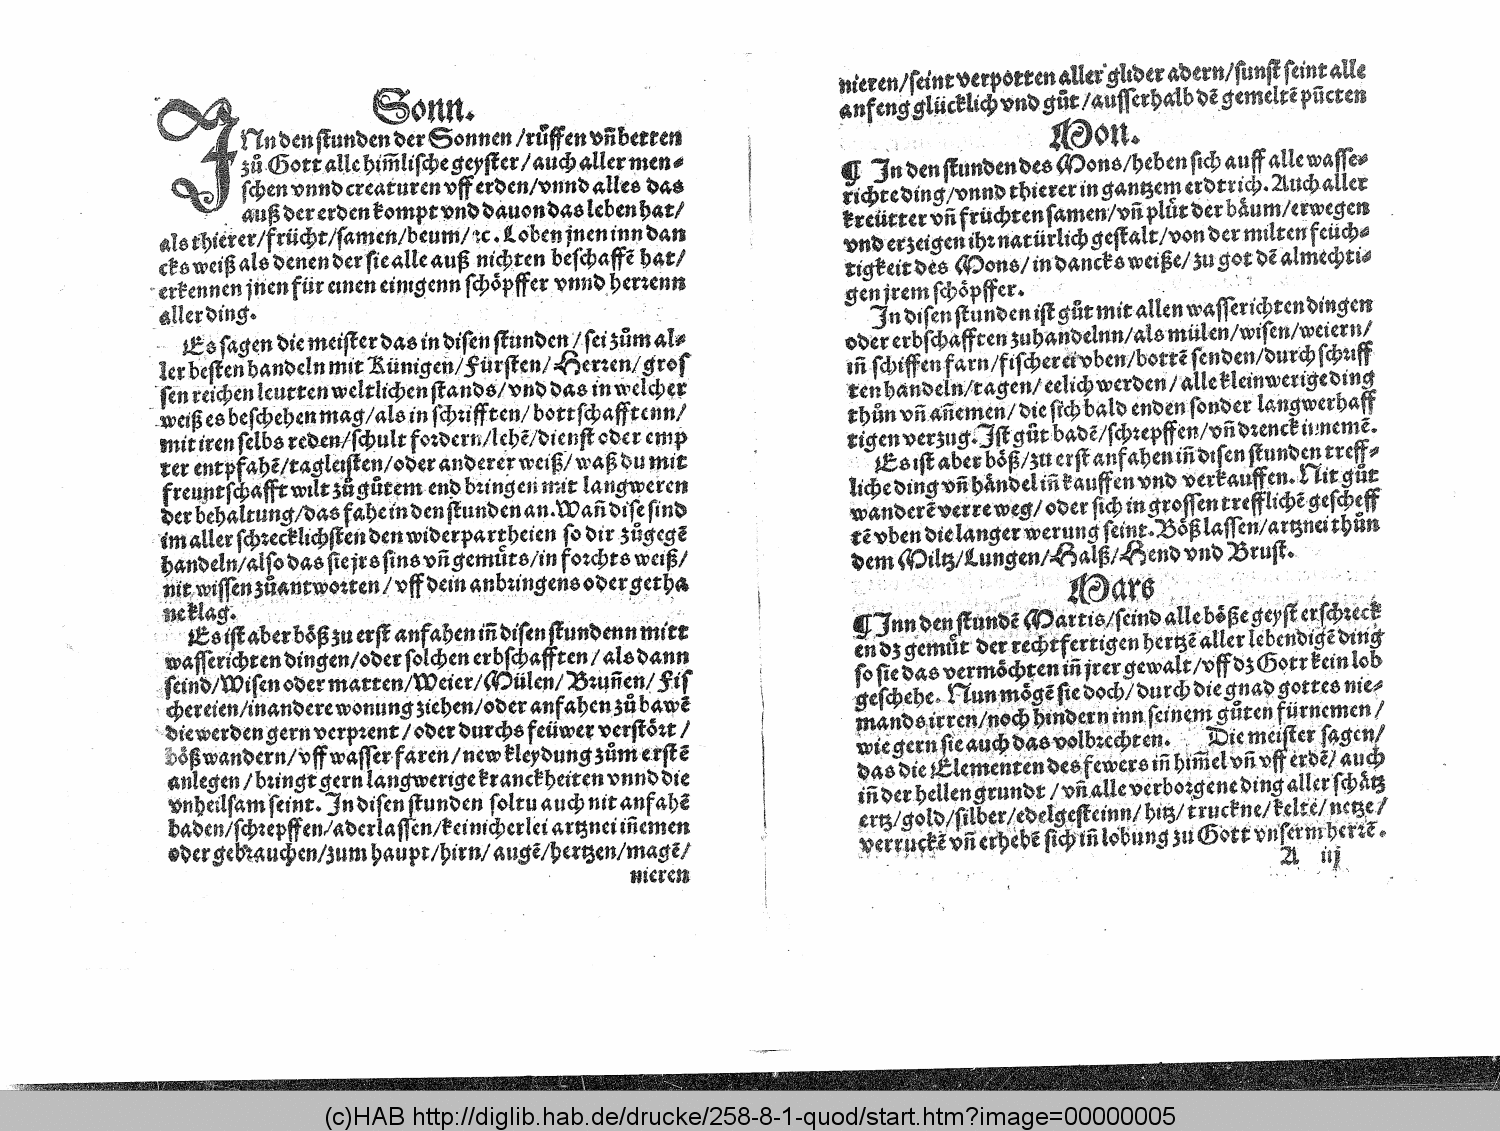 Sonn.
INn den stunden der Sonnen / růffen vñ betten
zů Gott alle him̃lische geyster / auch aller men⸗
schen vnnd creaturen vff erden / vnnd alles das
auß der erden kompt vnd dauon das leben hat /
als thierer / frücht / samen / beum / ꝛc. Loben jnen inn dan
cks weiß als denen der sie alle auß nichten beschaffẽ hat /
erkennen jnen für einen einigenn schöpffer vnnd herrenn
aller ding.
Es sagen die meister das in disen stunden / sei zům al⸗
ler besten handeln mit Künigen / Fürsten / Herren / gros
sen reichen leutten weltlichen stands / vnd das in welcher
weiß es beschehen mag / als in schrifften / bottschafftenn /
mit iren selbs reden / schult fordern / lehẽ / dienst oder emp
ter entpfahẽ / tagleisten / oder anderer weiß / waß du mit
freuntschafft wilt zů gůtem end bringen mit langweren
der behaltung / das fahe in den stunden an. Wañ dise sind
im aller schrecklichsten den widerpartheien so dir zůgegẽ
handeln / also das sie jrs sins vñ gemůts / in forchts weiß /
nit wissen zůantworten / vff dein anbringens oder getha
ne klag.
Es ist aber böß zu erst anfahen iñ disen stundenn mitt
wasserichten dingen / oder solchen erbschafften / als dann
seind / Wisen oder matten / Weier / Mülen / Bruñen / Fis
chereien / in andere wonung ziehen / oder anfahen zů bawẽ
die werden gern verprent / oder durchs feüwer verstört /
böß wandern / vff wasser faren / new kleydung zům erstẽ
anlegen / bringt gern langwerige kranckheiten vnnd die
vnheilsam seint. In disen stunden soltu auch nit anfahẽ
baden / schrepffen / aderlassen / keinicherlei artznei iñemen
oder gebrauchen / zum haupt / hirn / augẽ / hertzen / magẽ /
nieren
nieren / seint verpotten aller glider adern / sunst seint alle
anfeng glücklich vnd gůt / ausserhalb dẽ gemeltẽ pũcten
Mon.
¶ In den stunden des Mons / heben sich auff alle wasse⸗
richte ding / vnnd thierer in gantzem erdtrich. Auch aller
kreütter vñ früchten samen / vñ plůt der bäum / erwegen
vnd erzeigen ihr natürlich gestalt / von der milten feüch⸗
tigkeit des Mons / in dancks weiße / zu got dẽ almechti⸗
gen jrem schöpffer.
In disen stunden ist gůt mit allen wasserichten dingen
oder erbschafften zuhandelnn / als mülen / wisen / weiern /
iñ schiffen farn / fischerei vben / bottẽ senden / durch schriff
ten handeln / tagen / eelich werden / alle kleinwerige ding
thůn vñ añemen / die sich bald enden sonder langwerhaff
tigen verzug. Ist gůt badẽ / schrepffen / vñ drenck iñnemẽ.
Es ist aber böß / zu erst anfahen iñ disen stunden treff⸗
liche ding vñ händel iñ kauffen vnd verkauffen. Nit gůt
wanderẽ verre weg / oder sich in grossen trefflichẽ gescheff
tẽ vben die langer werung seint. Böß lassen / artznei thůn
dem Miltz / Lungen / Halß / Hend vnd Brust.
Mars
¶ Inn den stundẽ Martis / seind alle böße geyst erschreck
en dz gemůt der rechtfertigen hertzẽ aller lebendigẽ ding
so sie das vermöchten iñ jrer gewalt / vff dz Gott kein lob
geschehe. Nun mögẽ sie doch / durch die gnad gottes nie⸗
mands irren / noch hindern inn seinem gůten fürnemen /
wie gern sie auch das volbrechten. Die meister sagen /
das die Elementen des fewers iñ him̃el vñ vff erdẽ / auch
iñ der hellen grundt / vñ alle verborgene ding aller schätz
ertz / gold / silber / edelgesteinn / hitz / truckne / keltẽ / netze /
verruckẽ vñ erhebẽ sich iñ lobung zu Gott vnserm herrẽ.
A iij
(c)HAB http://diglib.hab.de/drucke/258-8-1-quod/start.htm?image=00000005